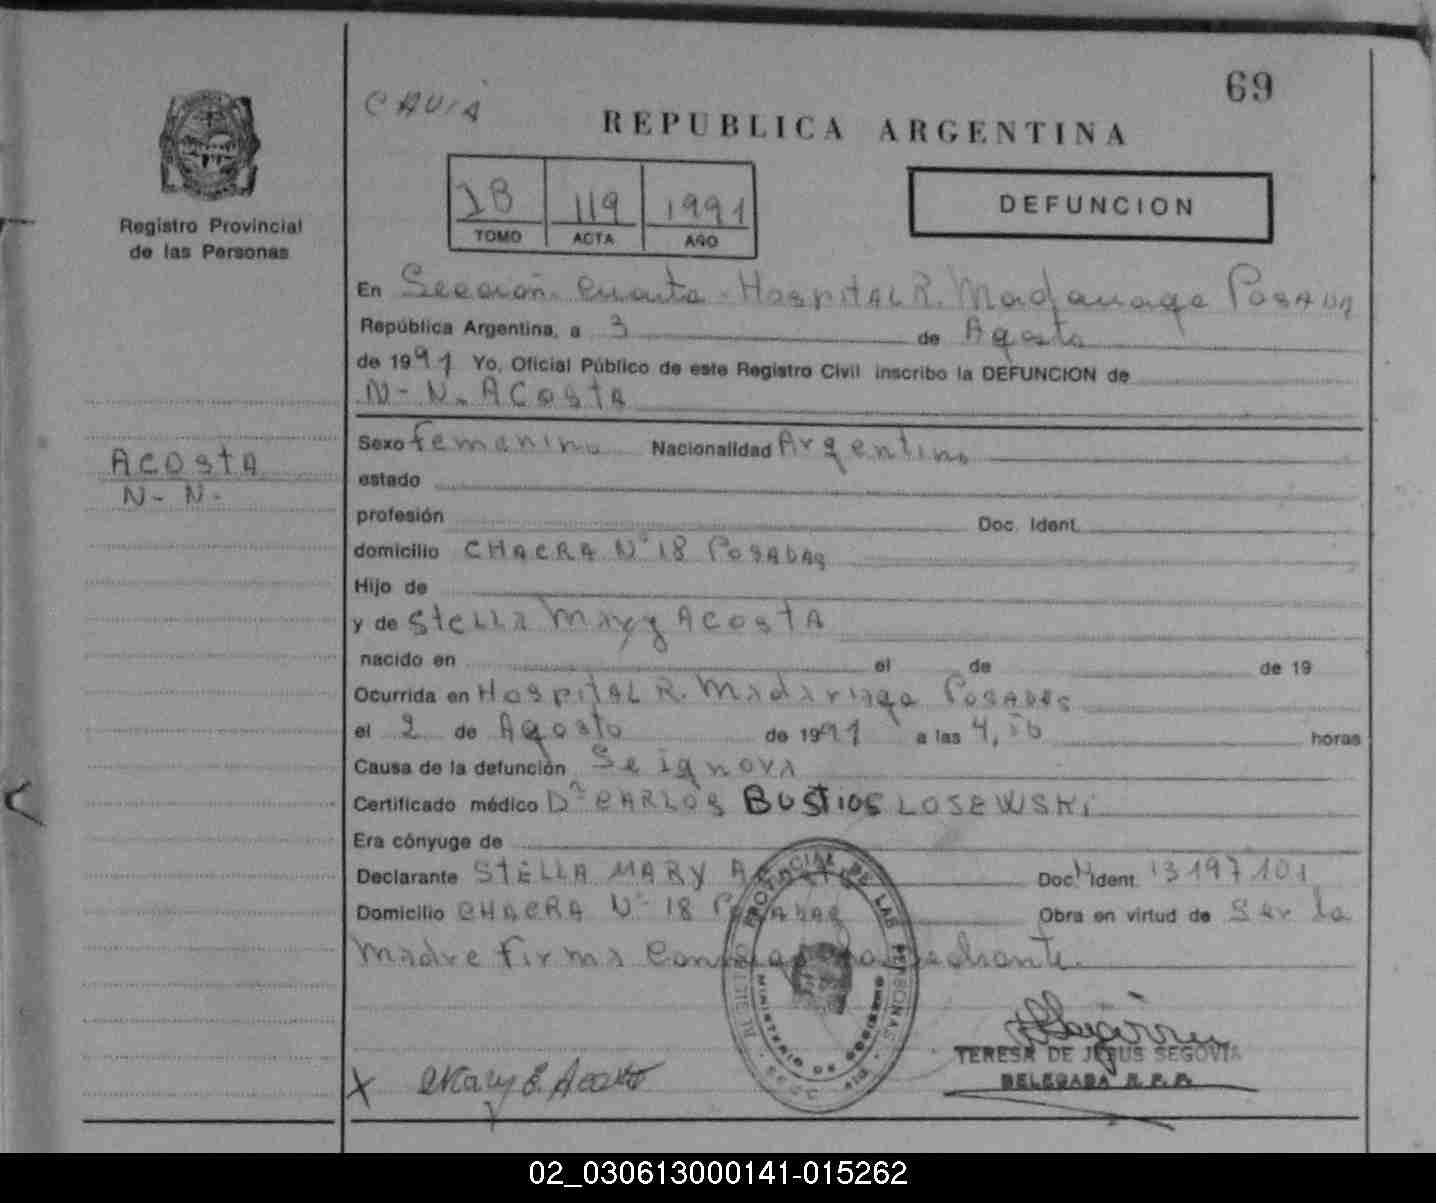 69
CAVIA
REPUBLICA ARGENTINA
Registro Provincial
de las Personas
1B 119 1991
TOMO ACTA AÑO
DEFUNCION
En Sección Cuarta - Hospital R. Madariaga Posadas
República Argentina, a 3 de Agosto
de 1991 Yo, Oficial Público de este Registro Civil inscribo la DEFUNCION de
N-N. Acosta
Sexo femenino Nacionalidad Argentino
ACOSTA
N-N-
estado
profesión Doc. Ident.
domicilio CHACRA Nº 18 POSADAS
Hijo de
y de Stella Mary Acosta
nacido en el de de 19
Ocurrida en Hospital R. Madariaga Posadas
el 2 de Agosto de 1991 a las 4, horas
Causa de la defunción Se ignora
Certificado médico Dr CARLOS BUSTIOS LOSEWSKI
Era cónyuge de
Declarante STELLA MARY Doc. Ident. 13197101
Domicilio CHACRA Nº 18 POSADAS Obra en virtud de Ser la
Madre firma
REGISTRO PROVINCIAL DE LAS PERSONAS
MINISTERIO DE GOBIERNO
X Mary E. Acosta
TERESA DE JESUS SEGOVIA
DELEGADA R.P.P.
02_030613000141-015262